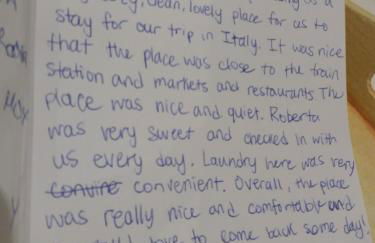 clean, lovely place for us to
stay for our trip in Italy. It was nice
that the place was close to the train
station and markets and restaurants. The
place was nice and quiet. Roberta
was very sweet and checked in with
us every day. Laundry here was very
convenient. Overall, the place
was really nice and comfortable and
love to come back some day!